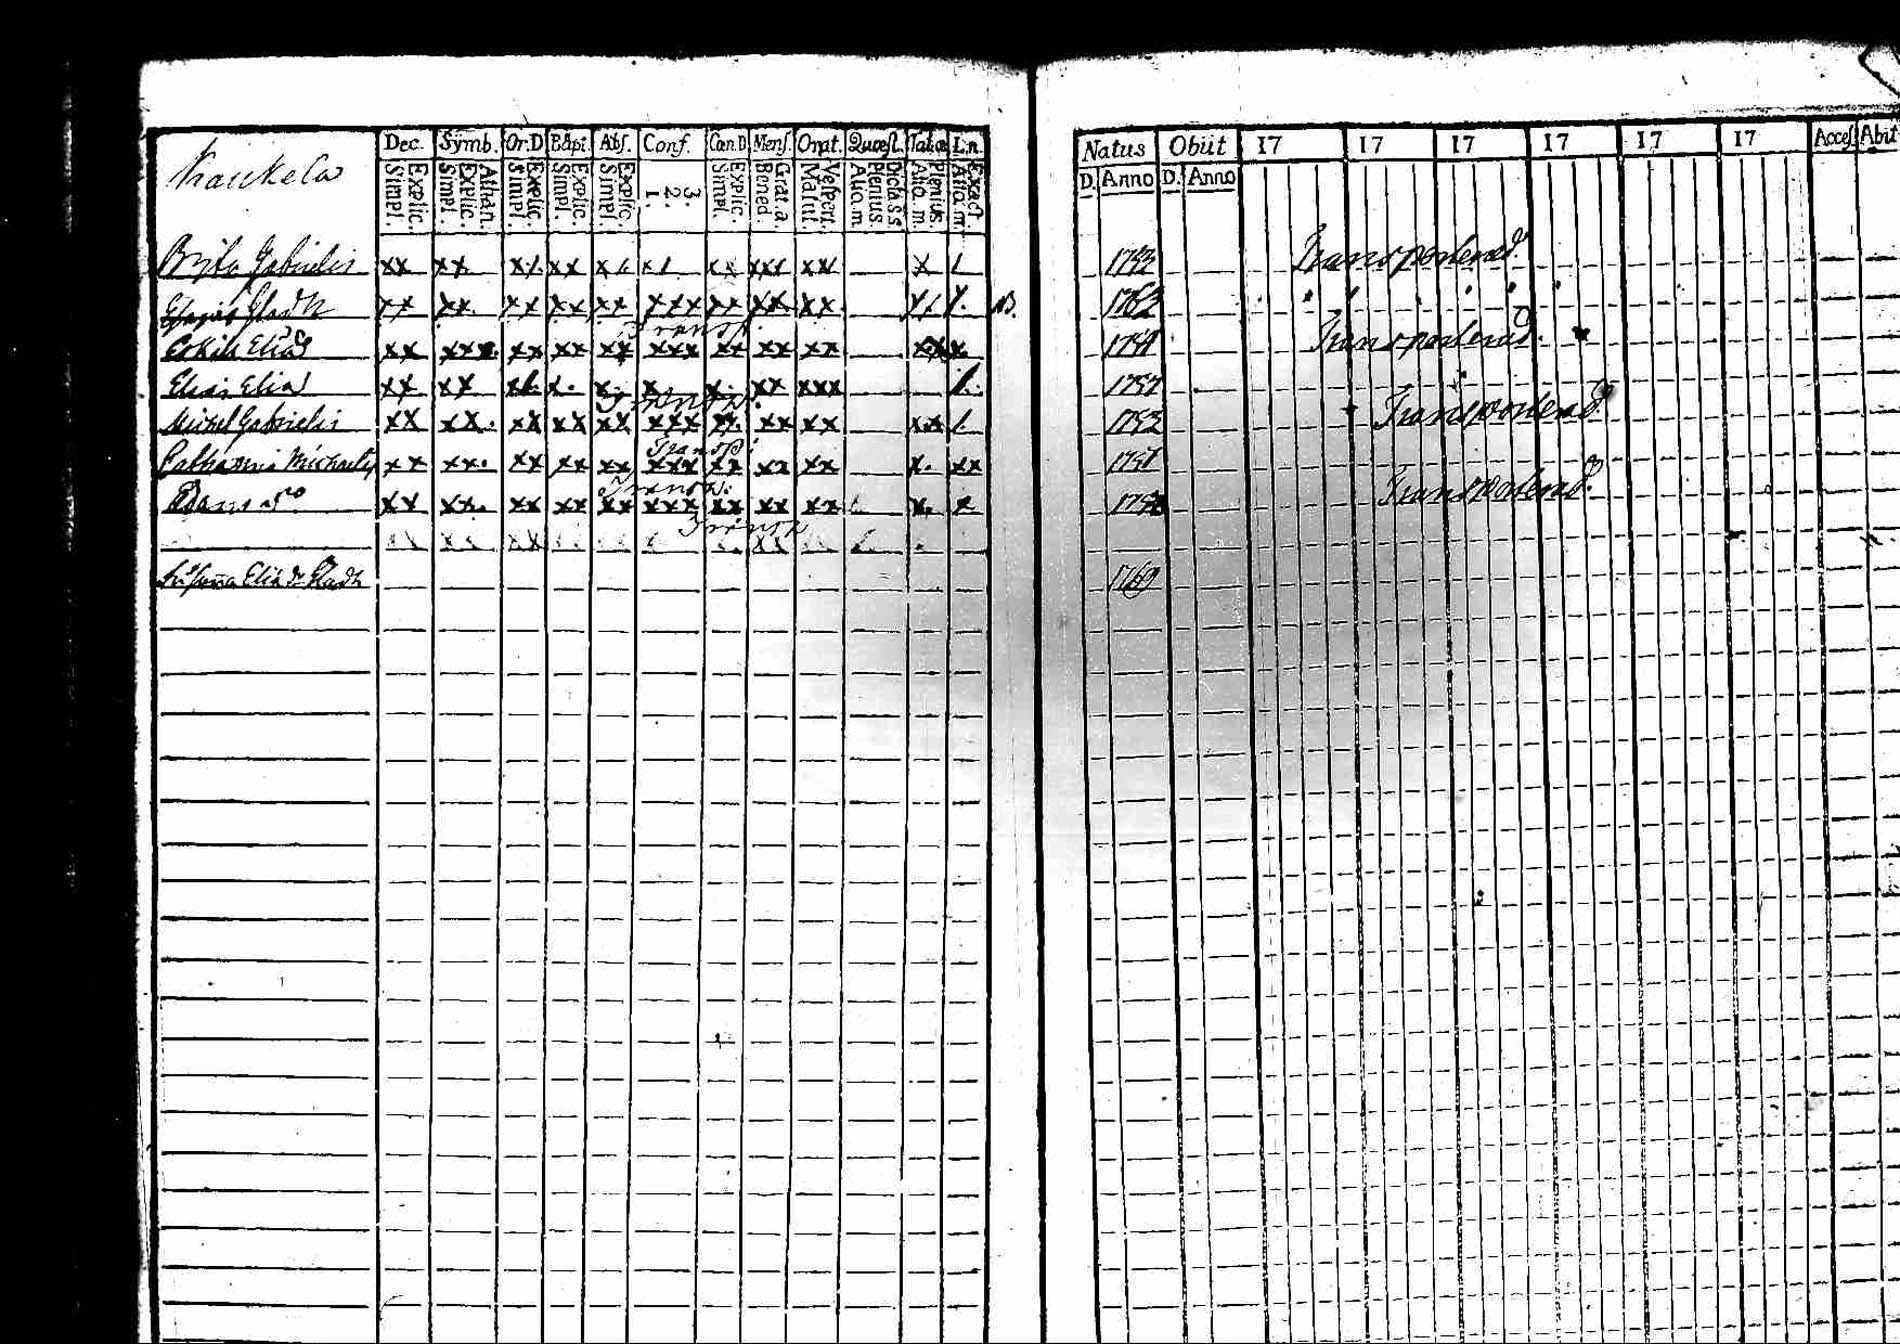 Kaukela
Dec. Symb. Or.D Bapt. Abs. Conf. Can.D Mens. Orat. Quæst. Tabœ L.n.
Explic. Simpl. Athan. Explic. Simpl. Explic. Simpl. Explic. Simpl. Explic. Simpl. 3. 2. 1. Explic. Simpl. Grat. a. Bened. Vespert. Matut. Dicta SS. Plenius Aliq.m. Plenius. Aliq.m. Exact Aliq.m.
Natus Obiit 17 17 17 17 17 17 Access Abit
D. Anno D. Anno
Brita Gabrielis xx xx. x/. xx x/. x/ xx xxx xx x / 1753 Transporterad.
Gladh xx xx. xx xx xx xxx xx xx. xx. x/ /. NB. 1762
Transp.
Eskill Elias xx xxx. xx xx xx xxx xx xx xx x 1759 Transporterad.
Elias Elias xx xx x. x. x x. xx xxx /. 1757
Transp.
Michel Gabrielis xx xx. xx xx xx xxx xx xx xx / 1752 Transporterad.
Transp:
Catharina Michaelis xx xx. xx xx xx xxx xx xx xx x. xx 1751
Transp:
Adam xx xx. xx xx xx xxx xx xx xx x. x 175 Transporterad.
Transp
Susanna Elias dr Gladh 1760